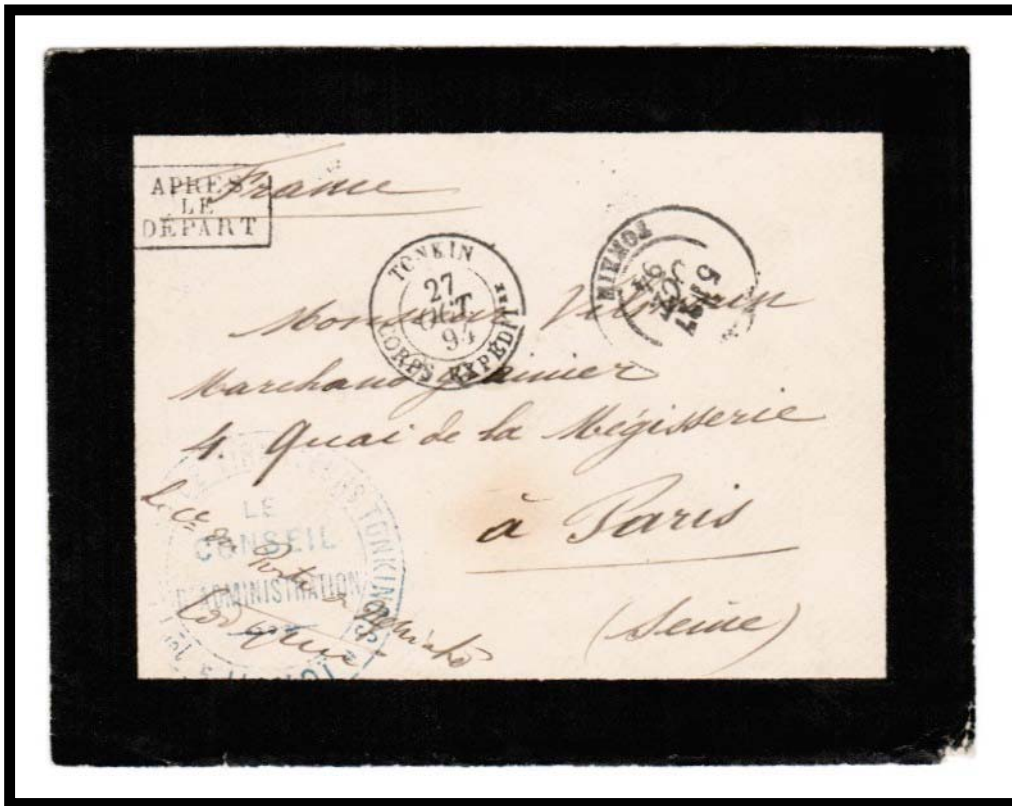 APRES
LE
DÉPART
France
TONKIN
27
OCT
94
CORPS EXPÉDIT
TONKIN
Monsieur
Marchand grainier
4. Quai de la Mégisserie
à Paris
(Seine)
TONKINOIS
LE
CONSEIL
D'ADMINISTRATION